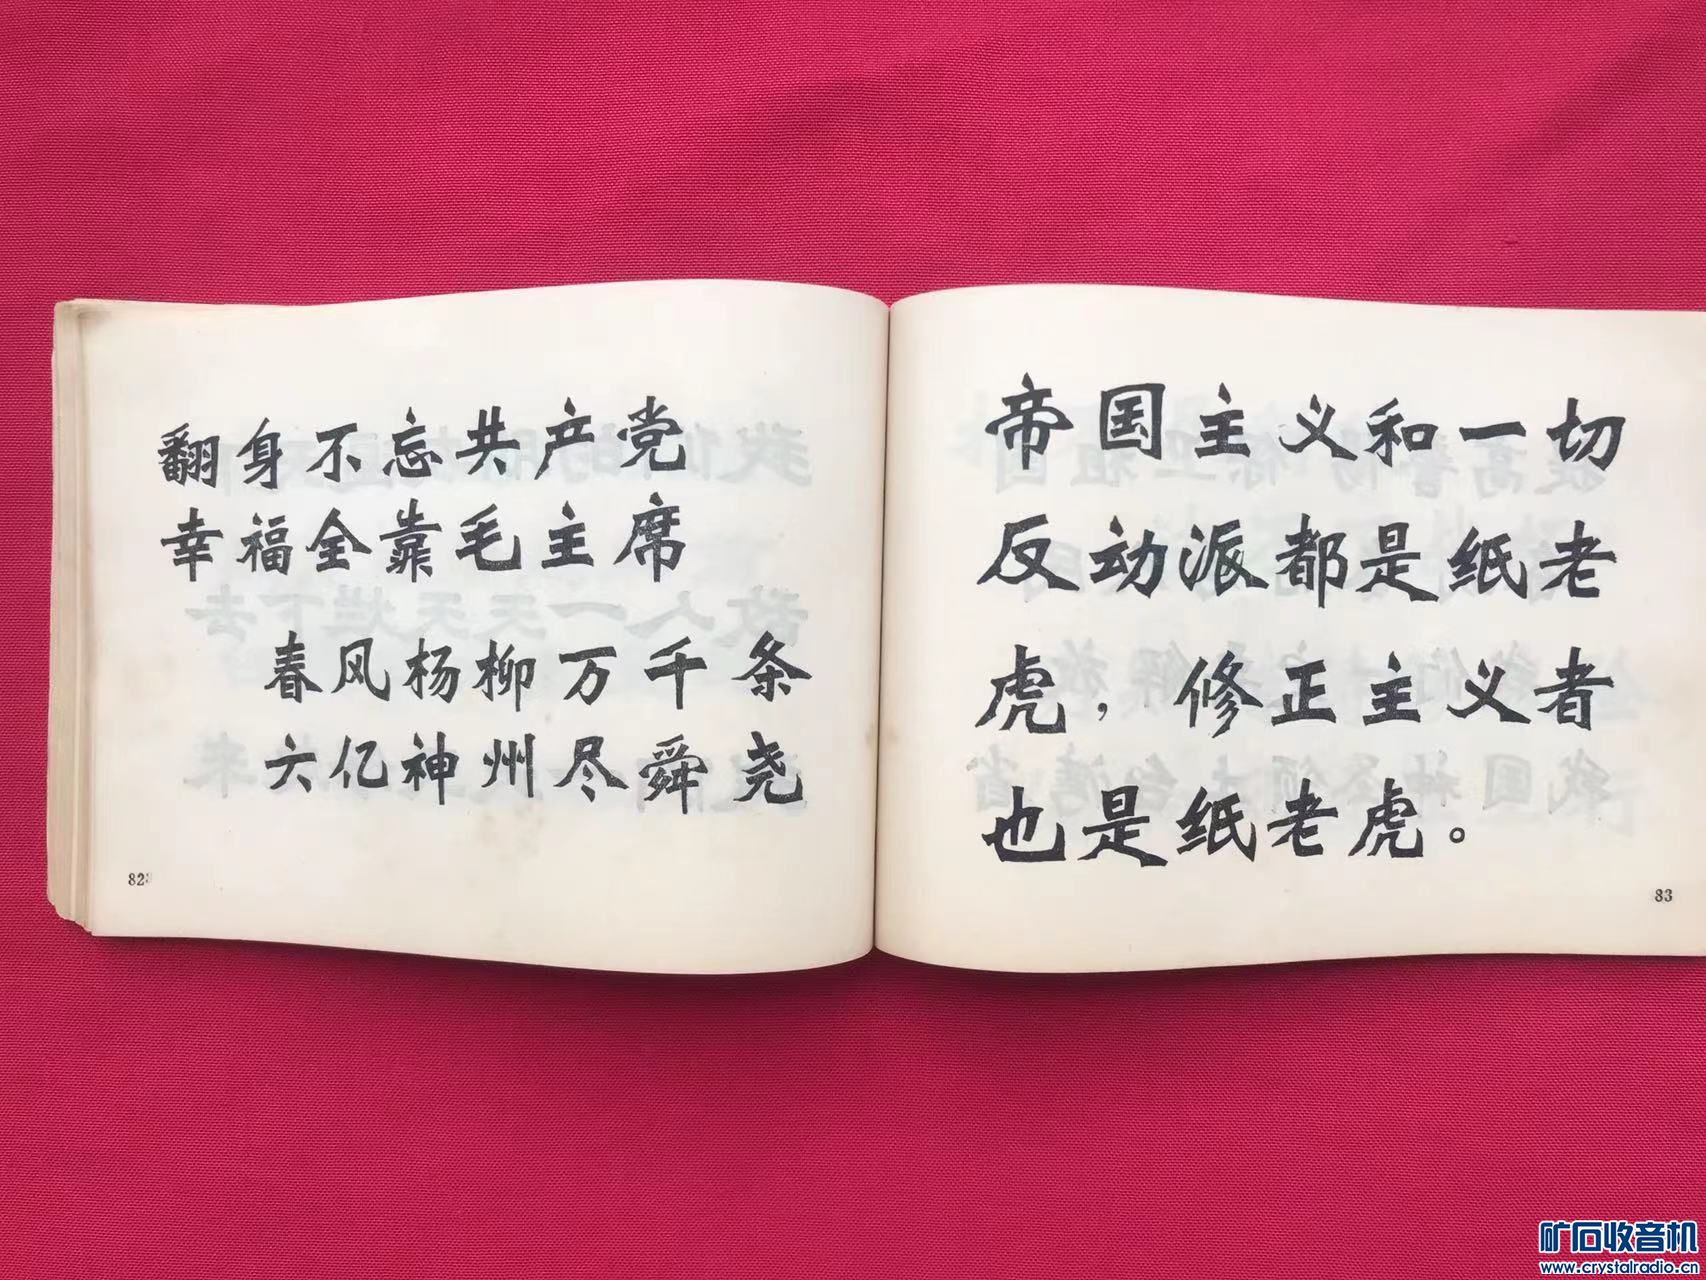 翻身不忘共产党
幸福全靠毛主席
春风杨柳万千条
六亿神州尽舜尧
82
帝国主义和一切
反动派都是纸老
虎，修正主义者
也是纸老虎。
83
矿石收音机
www.crystalradio.cn